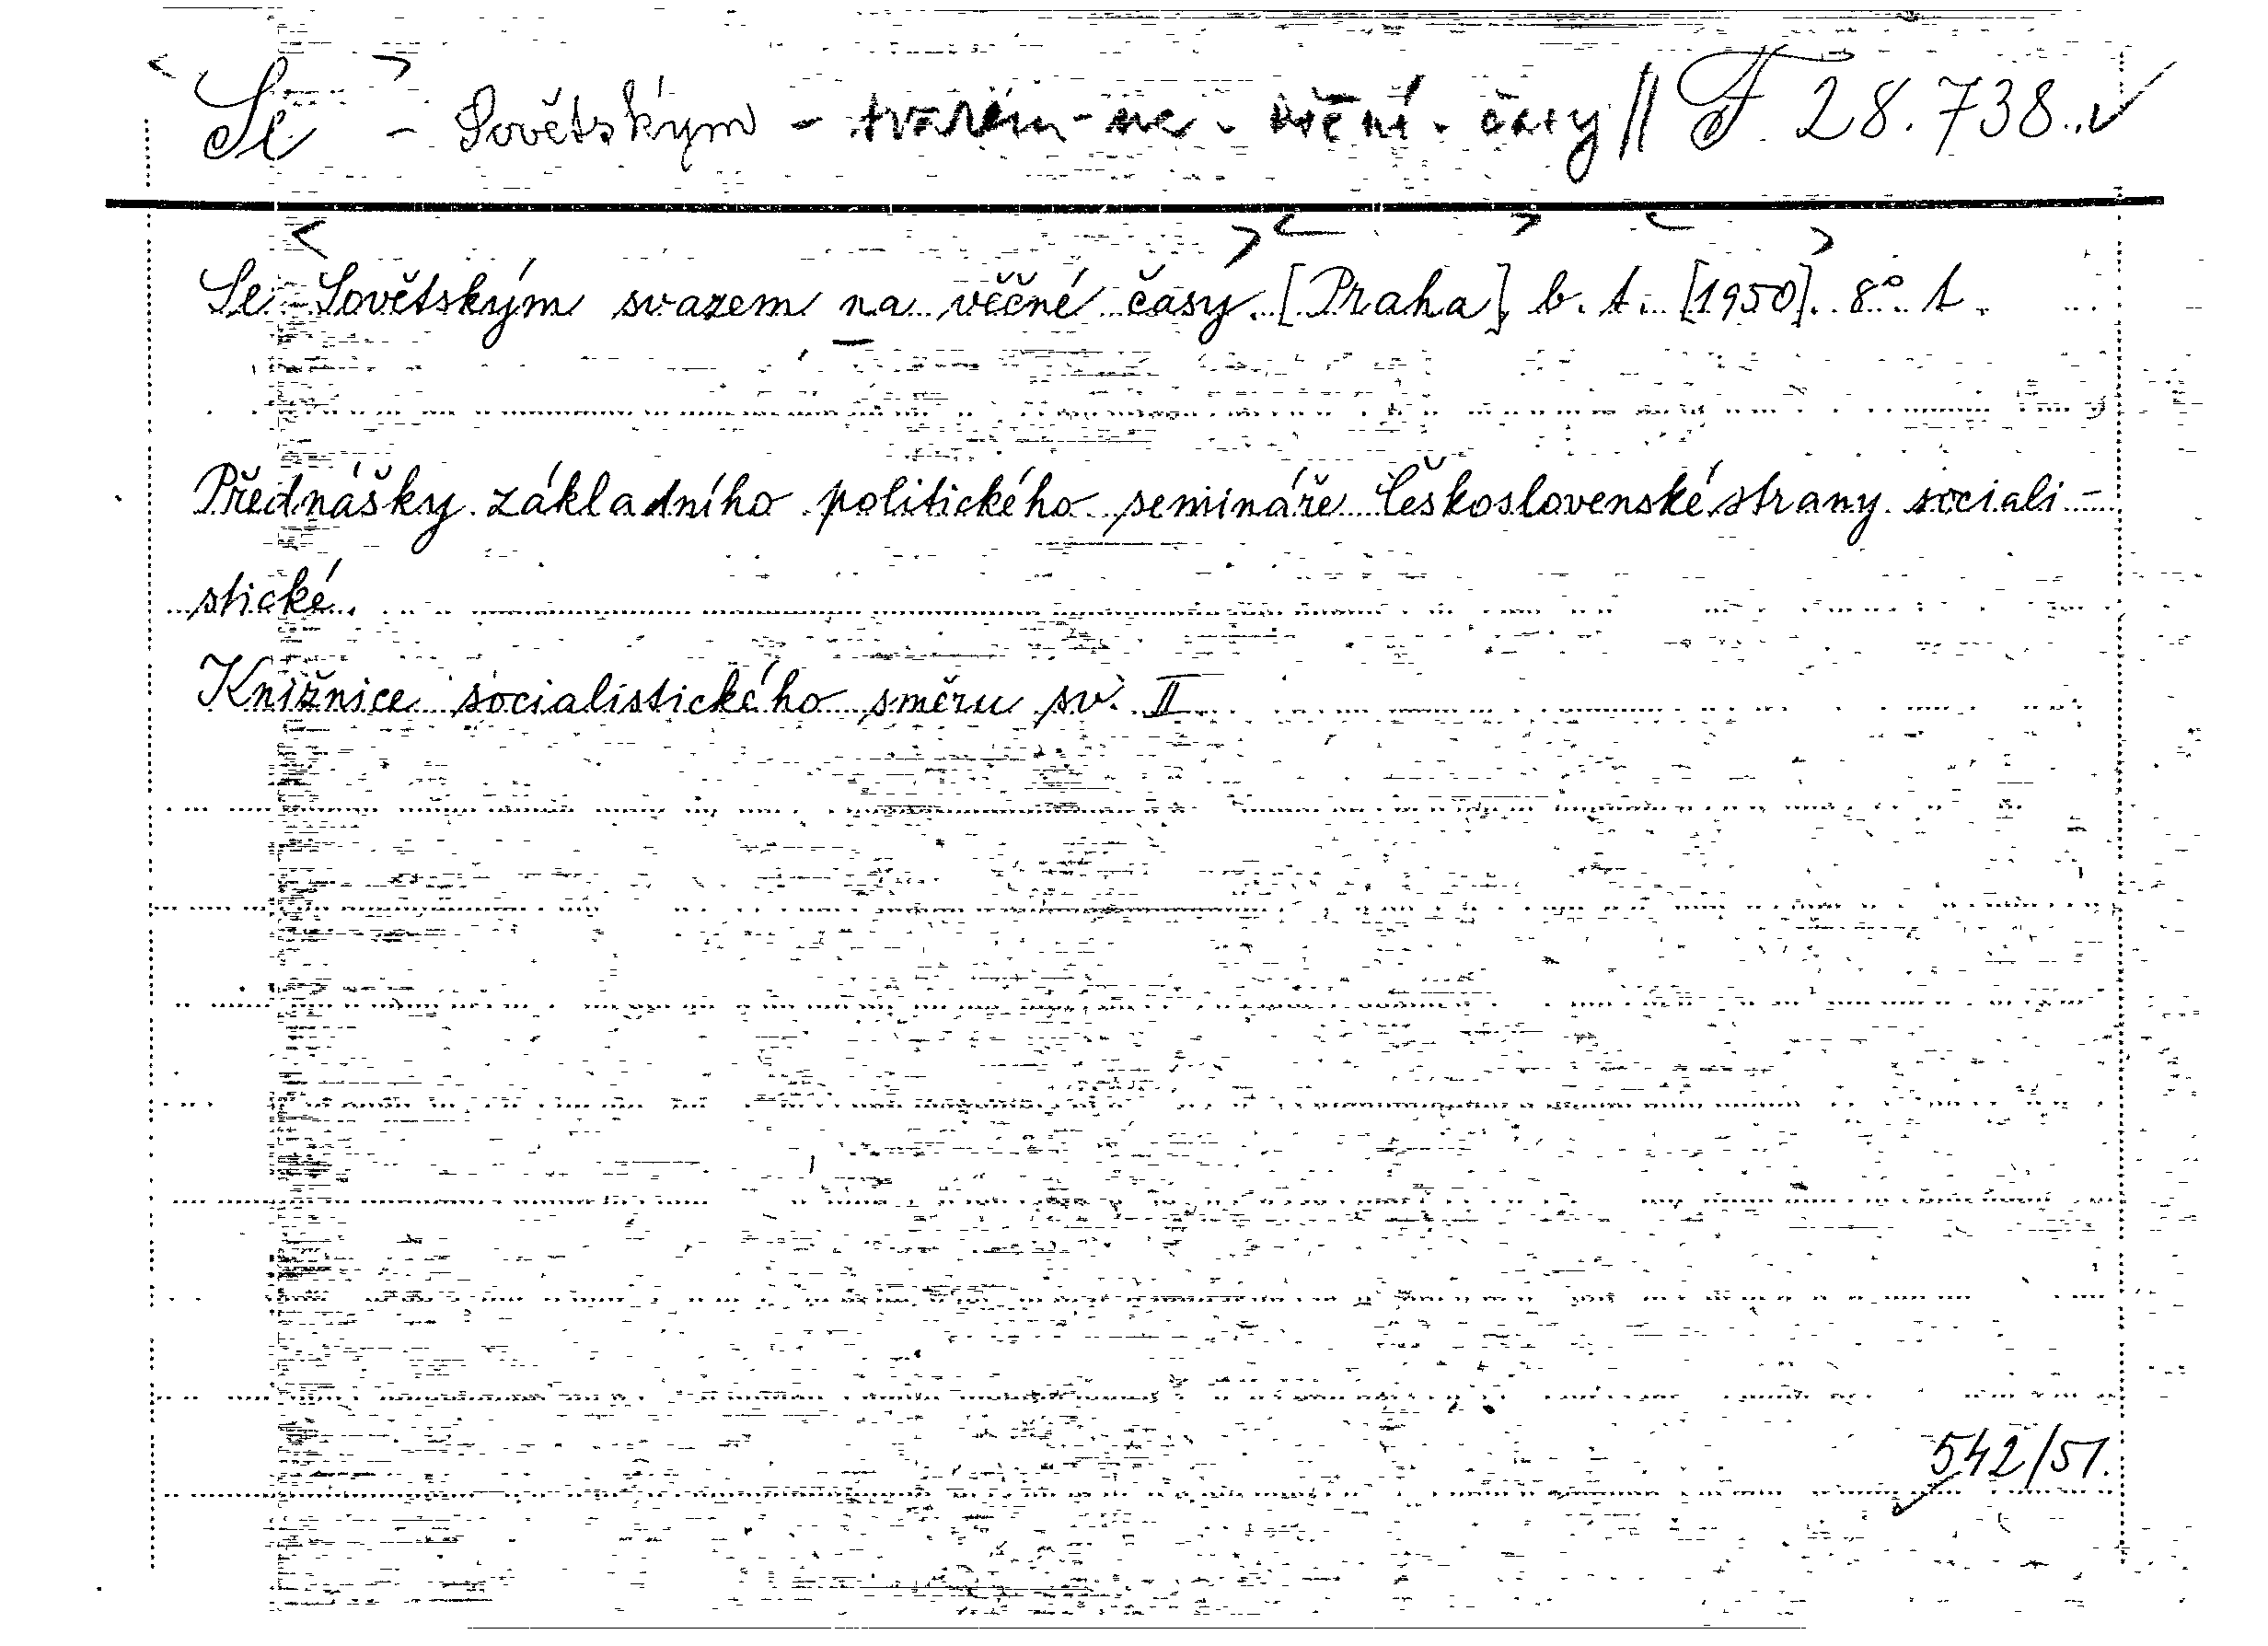 < Se > - Sovětským - svazem - na - věčné - časy // F 28.738.
Se Sovětským svazem na věčné časy. [Praha], b. t. [1950]. 8°. 1.
Přednášky základního politického semináře Československé strany sociali-
stické.
Knižnice socialistického směru sv. II.
542/51.